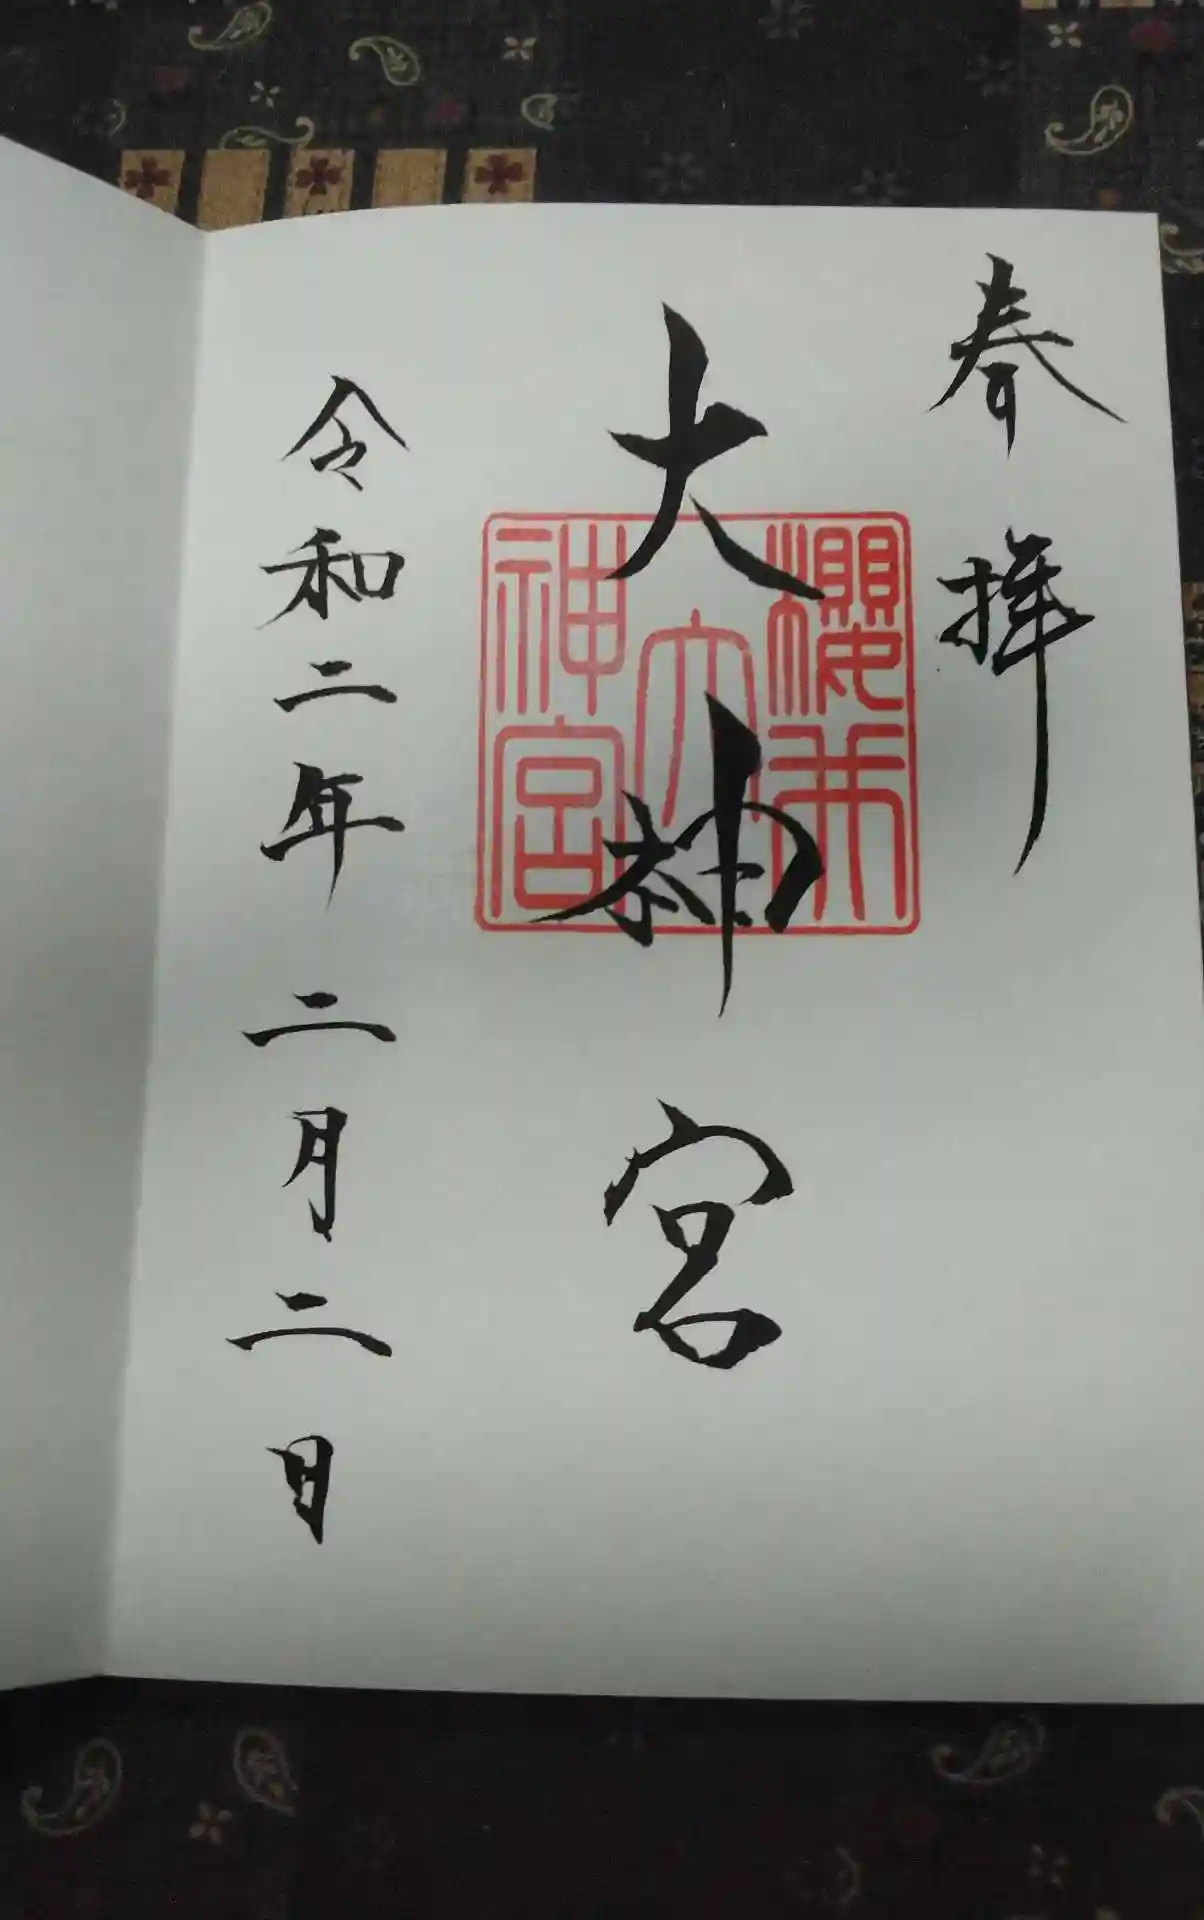 奉拝
大神宮
櫻井
大
神宮
令和二年 二月二日